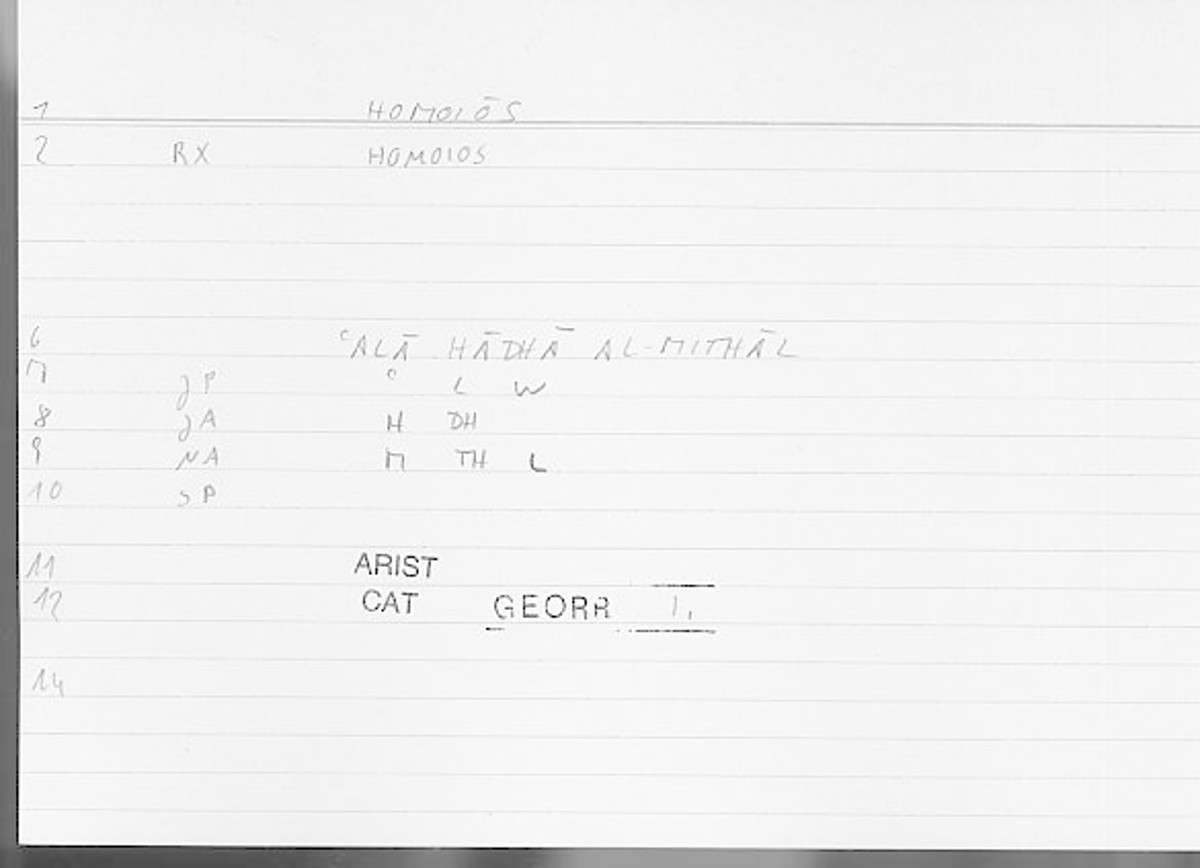 1 HOMOIŌS
2 RX HOMOIOS
6 ʿALĀ HĀDHĀ AL-MITHĀL
7 JP ʿ L W
8 JA H DH
9 NA M TH L
10 SP
11 ARIST
12 CAT GEORR 1,
14